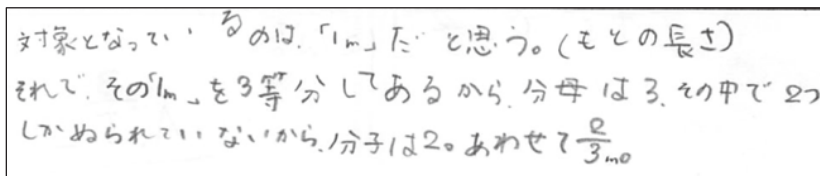 対象となっているのは、「1m」だと思う。(もとの長さ)
それで、その「1m」を3等分してあるから、分母は3、その中で2つ
しかぬられていないから、分子は2。あわせて2/3m。